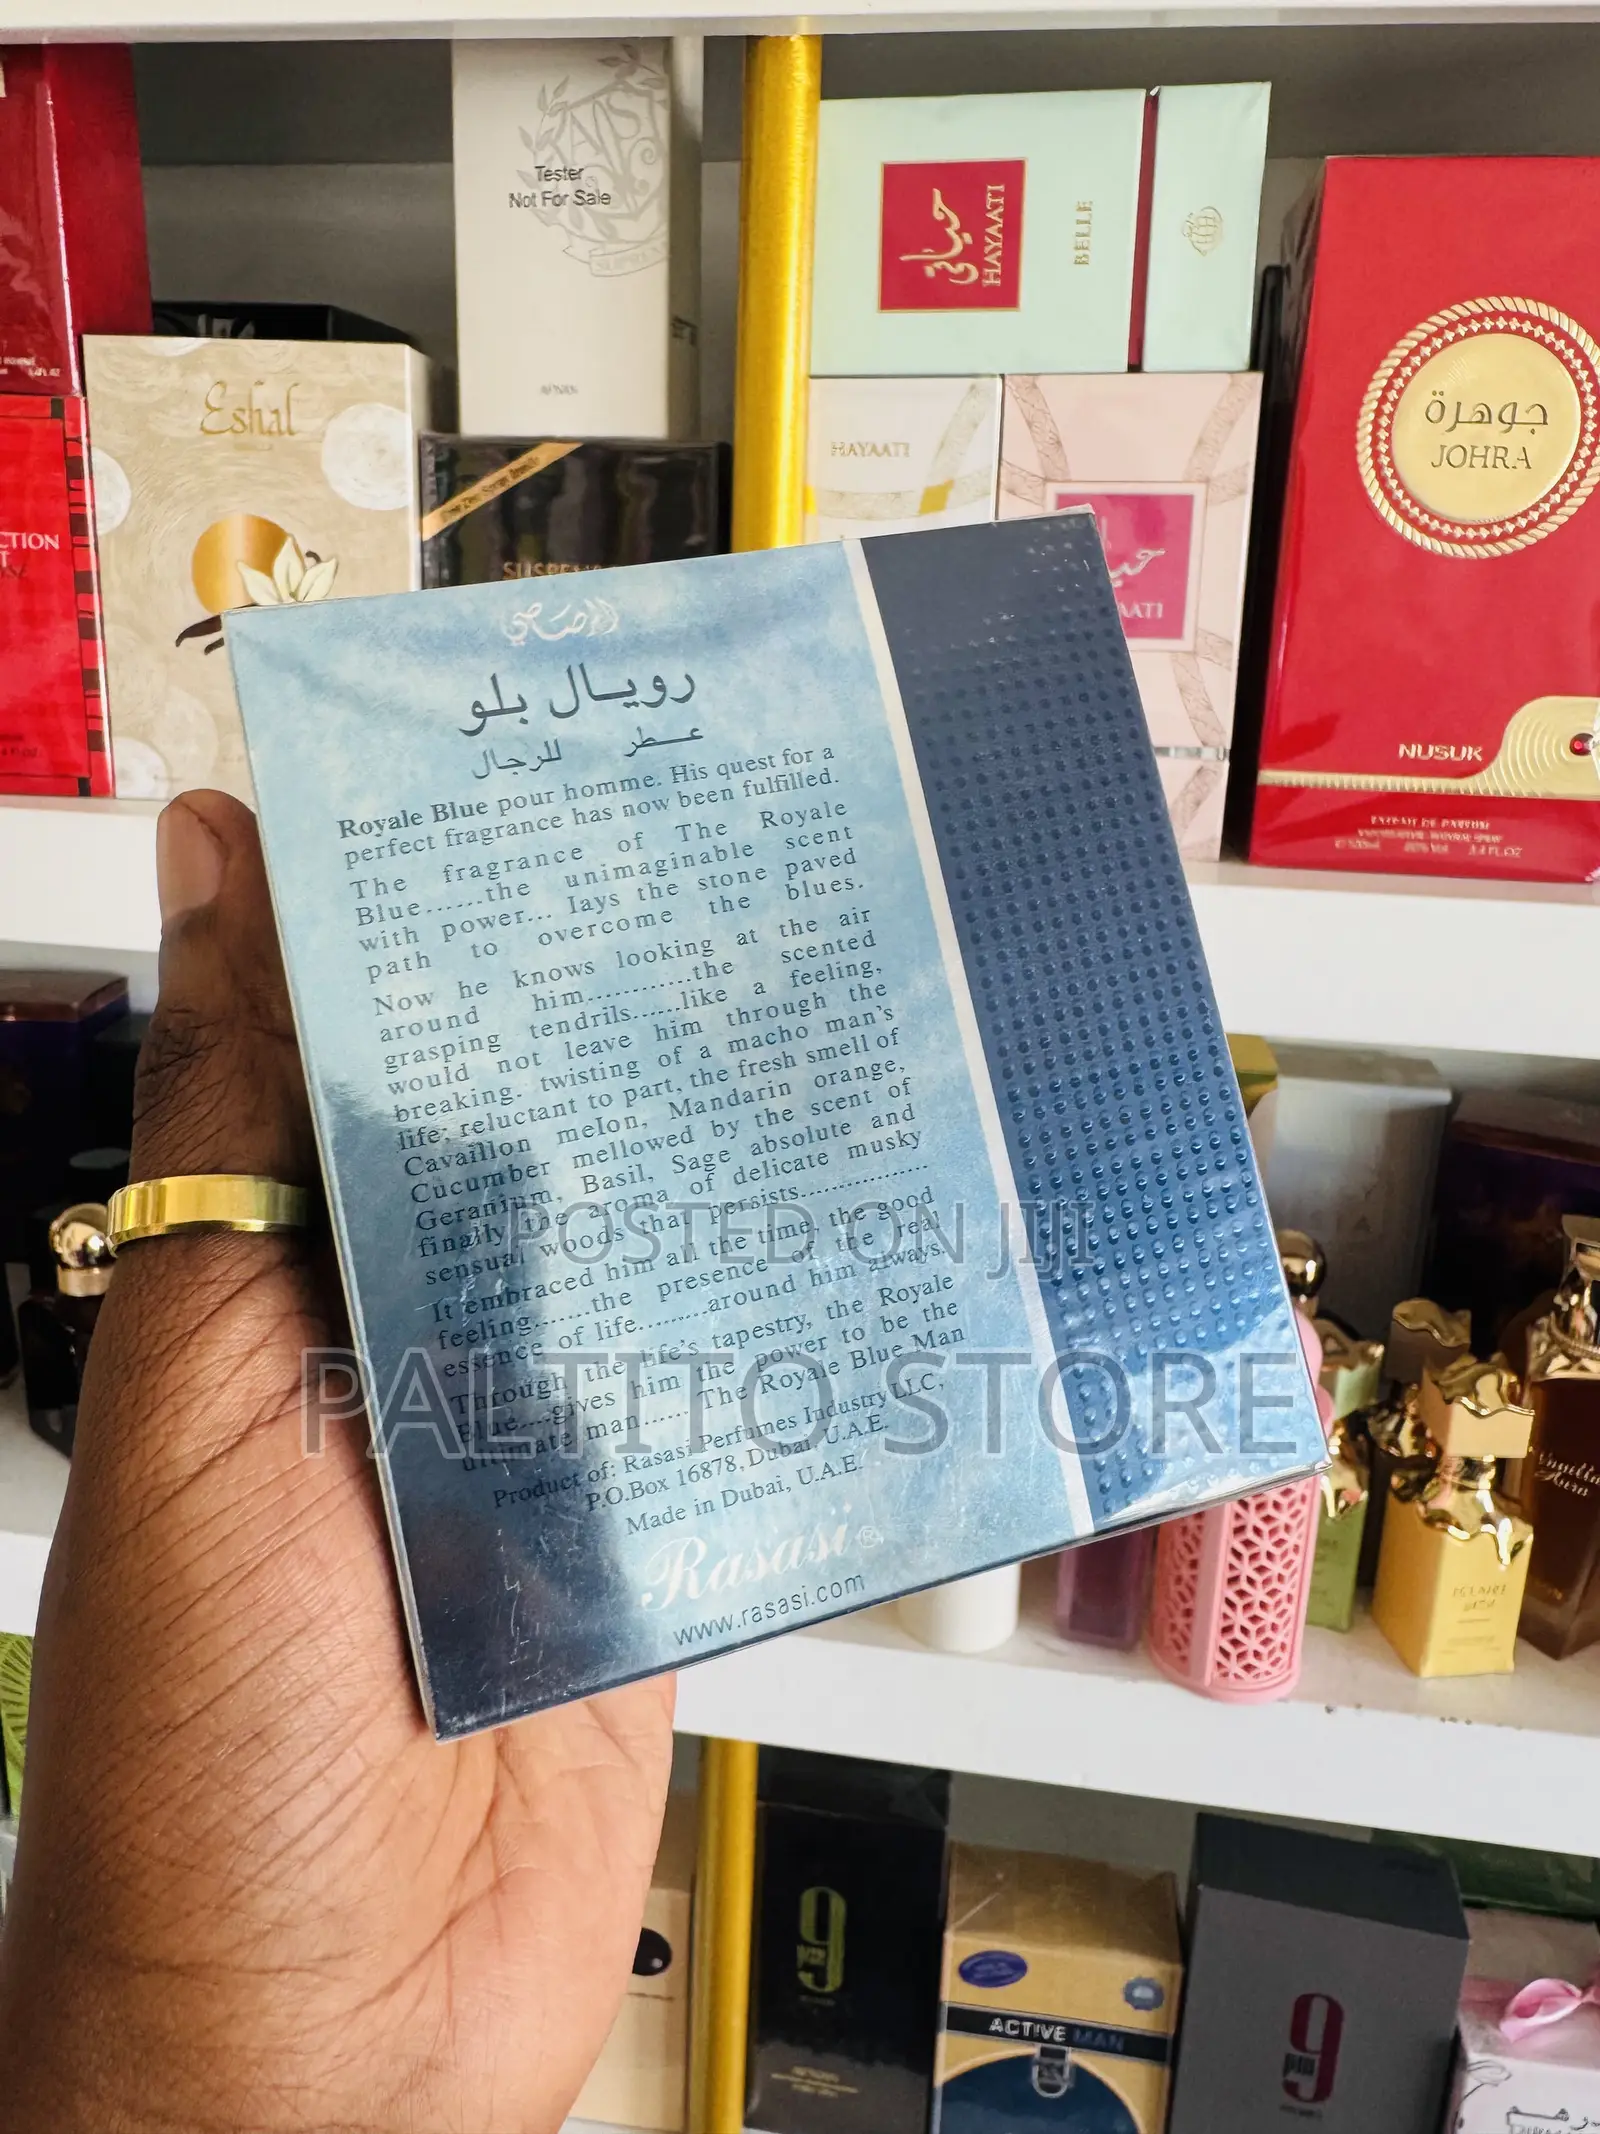 Tester
Not For Sale
AFNAN
حياتي
HAYAATI
BELLE
Eshal
HAYAATI
جوهرة
JOHRA
NUSUK
EXTRAIT DE PARFUM
CTION
الرصاصي
رويال بلو
عطر للرجال
Royale Blue pour homme. His quest for a
perfect fragrance has now been fulfilled.
The fragrance of The Royale
Blue......the unimaginable scent
with power... lays the stone paved
path to overcome the blues.
Now he knows looking at the air
around him............the scented
grasping tendrils......like a feeling,
would not leave him through the
breaking. twisting of a macho man's
life; reluctant to part, the fresh smell of
Cavaillon melon, Mandarin orange,
Cucumber mellowed by the scent of
Geranium, Basil, Sage absolute and
finally the aroma of delicate musky
sensual woods that persists................
It embraced him all the time, the good
feeling.......the presence of the real
essence of life.........around him always.
Through the life's tapestry, the Royale
Blue....gives him the power to be the
ultimate man...... The Royale Blue Man
Product of: Rasasi Perfumes Industry LLC,
P.O.Box 16878, Dubai, U.A.E.
Made in Dubai, U.A.E.
Rasasi®
www.rasasi.com
POSTED ON JIJI
PALTITO STORE
9
pm
ACTIVE MAN
9
pm